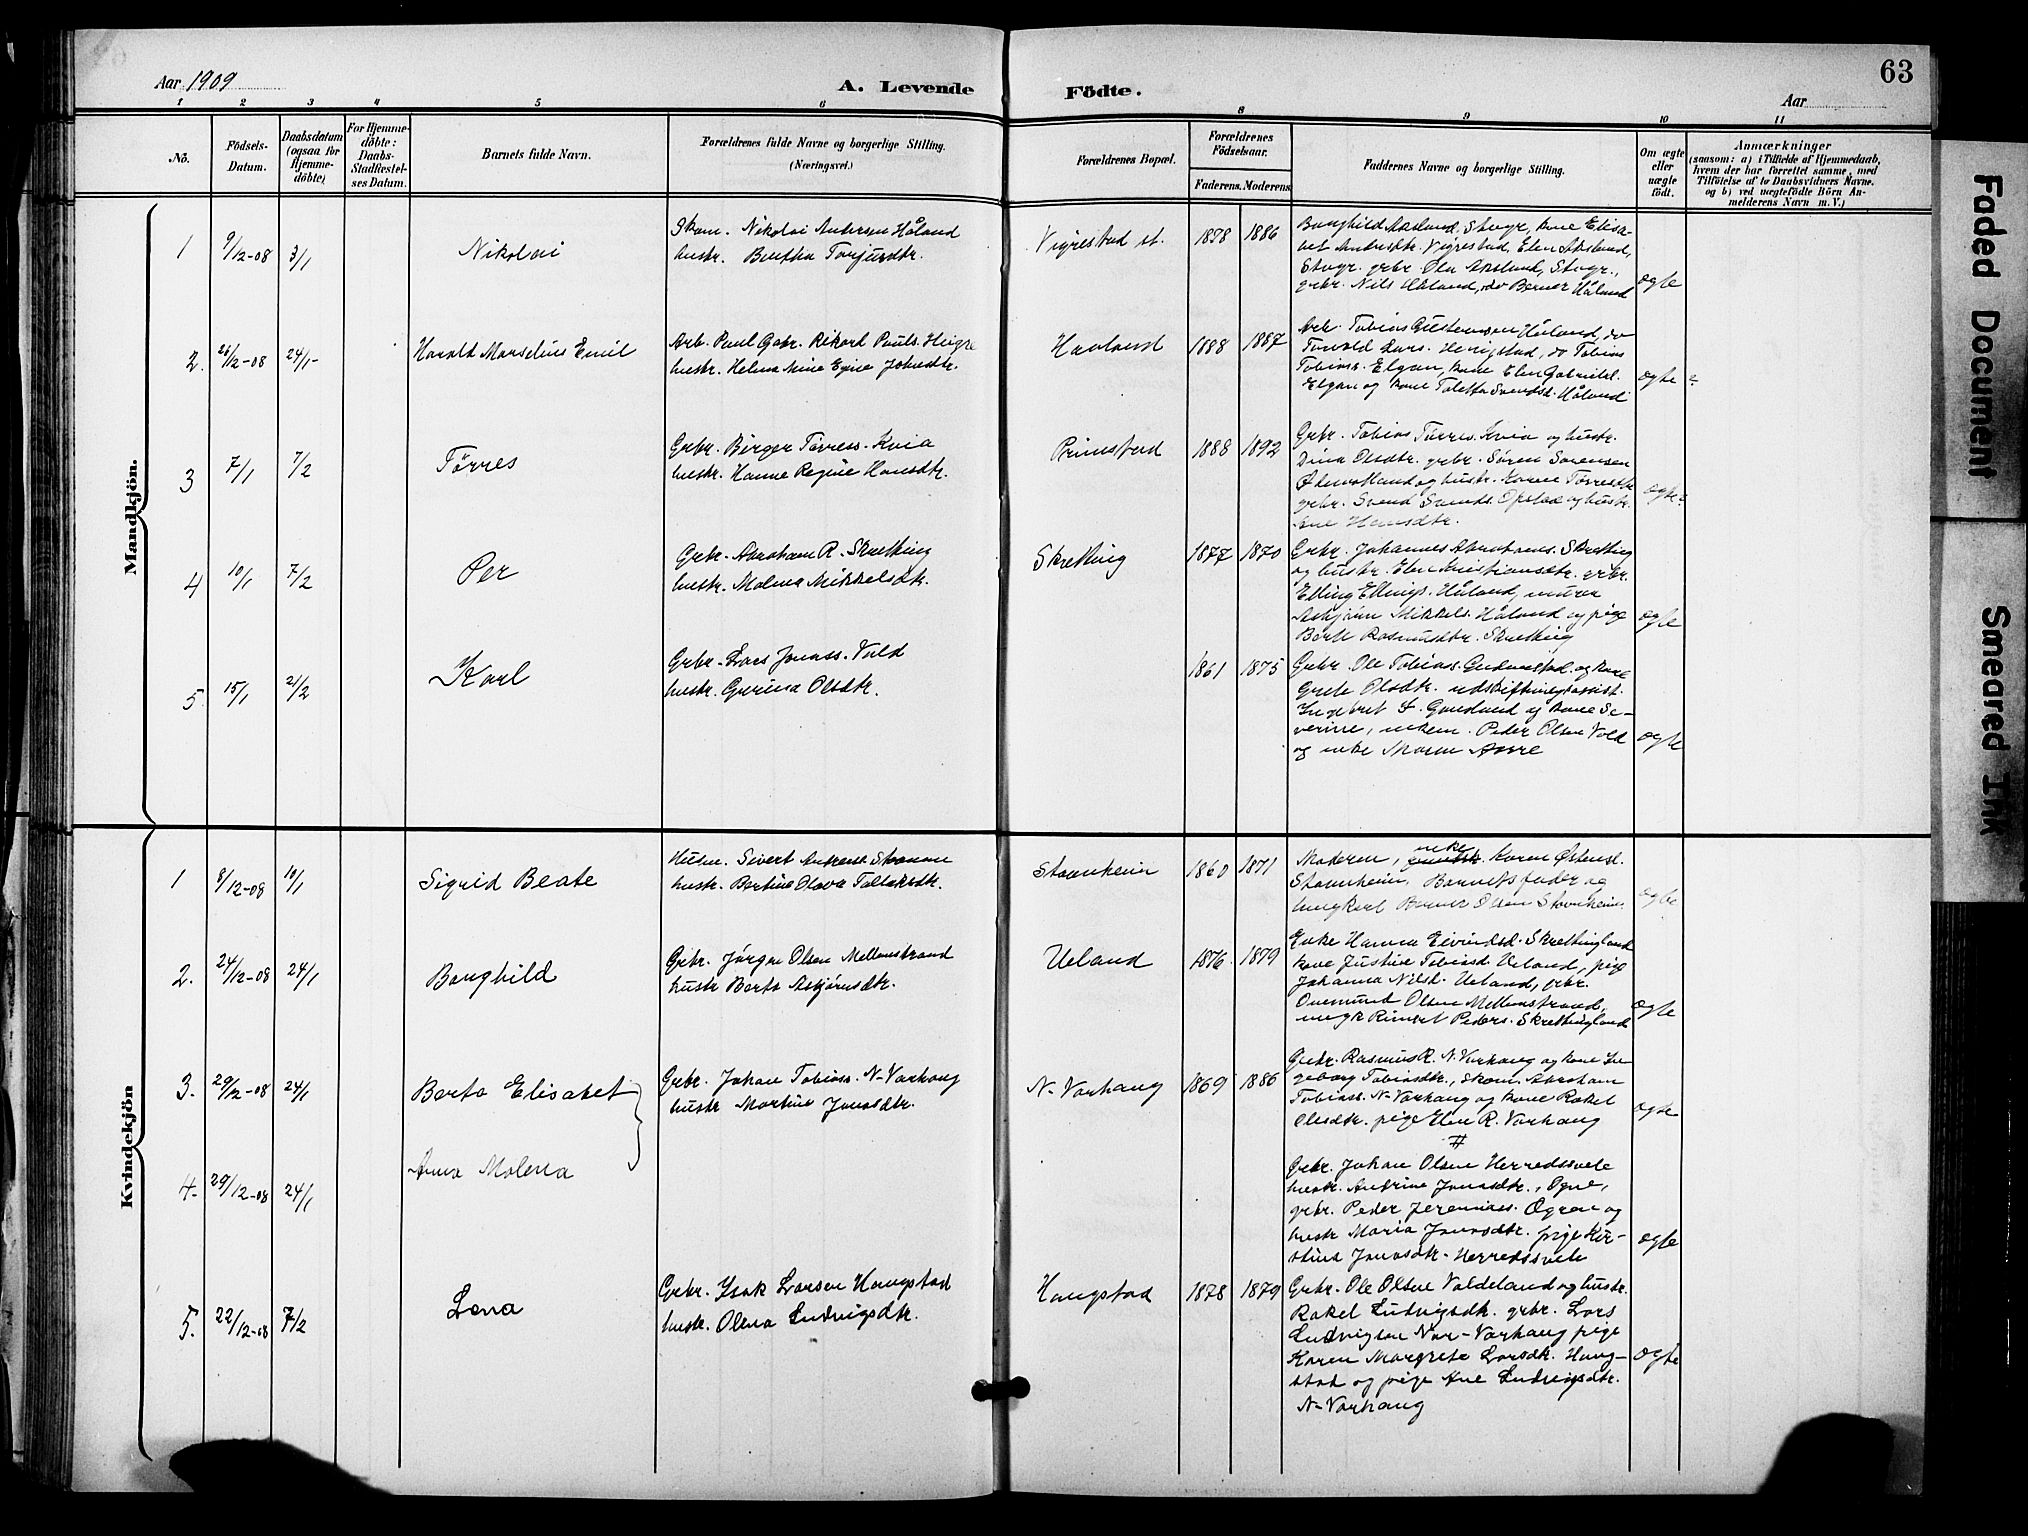 63
Aar 1909
A. Levende Födte.
Aar
1 2 3 4 5 6 8 9 10 11
No.
Födsels-Datum.
Daabsdatum (ogsaa for Hjemme-döbte)
For Hjemme-döbte: Daabs-Stadfestel-ses Datum.
Barnets fulde Navn.
Forældrenes fulde Navne og borgerlige Stilling.
(Næringsvei.)
Forældrenes Bopæl.
Forældrenes Födselsaar.
Faderens. Moderens
Faddernes Navne og borgerlige Stilling.
Om ægte eller uægte födt.
Anmærkninger
(saasom: a) i Tilfælde af Hjemmedaab,
hvem der har forrettet samme, med
Tilföielse af to Daabsvidners Navne.
og b) ved uegtefödte Börn An-
melderens Navn m. V.)
Mandkjön.
1 9/12-08 3/1 Nikolai
Skom. Nikolai Andersen Håland
hustr. Bertha Torjusdtr.
Vigrestad st. 1878 1886
Borghild Aksland, Stvgr, kone Elisa-
bet Andrsdtr. Vigrestad, Elen Aksland,
Stvgr. grbr. Ola Aksland, Stvgr.,
grbr. Nils Håland, do Berner Håland
ægte
2. 26/12-08 24/1 Harald Marselius Emil
Arb. Paul Gabr. Rikard Pauls. Heigre
hustr. Helena Mine Egine Johnsdtr.
Haaland 1888 1887
Arb. Tobias Gustensen Håland, do
Torvald Lars. Herigstad, do Tobias
Tobias. Elgan, kone Elen Gabriel.
Elgan og kone Taletta Svendsd. Håland
ægte
3 7/1 7/2 Tørres
Grbr. Birger Tørress. Kvia
hustr. Hanne Regine Hansdtr.
Prinestad 1888 1892
Grbr. Tobias Tørres. Kvia og hustr.
Dina Olsdtr. grbr. Søren Sørensen
og hustr. Karen Tørresdtr.
grbr. Svend Svends. Opstad og hustr.
Ane Hansdtr.
ægte
4 10/1 7/2 Per
Grbr. Abraham R. Skretting
hustr. Malena Mikkelsdtr.
Skretting 1877 1870
Grbr. Johannes Abrahams. Skretting
og hustr. Elen Kristiansdtr. grbr.
Elling Ellings. Håland, murer
Asbjørn Mikkels. Håland og pige
Berte Rasmusdtr. Skretting
ægte
5. 15/1 21/2 Karl
Grbr. Lars Jonass. Vold
hustr. Gurina Olsdtr.
1861 1875
Grbr. Ole Tobias. Gudmestad. og kone
Grete Olsdtr. udskiftningsassist.
Ingebret T. Gausland og kone Se-
verine, enkem. Peder Olsen Vold
og enke Maren Aarre
ægte
Kvindekjön
1 8/12-08 10/1 Sigrid Beate
Husm. Sivert Andreas
hustr. Bertine Olava Tollaksdtr.
Stavnheim 1860 1871
Moderen, enke Karen Østensd.
Stavnheim, Barnets fader og
ungkarl Berner Olsen Stavnheim.
ægte
2. 24/12-08 24/1 Borghild
Grbr. Jørgen Olsen Mellomstrand
hustr Berta Asbjørnsdtr.
Ueland 1876 1879
Enke Hanna Eivindsd. Skrettingland
kone Justine Tobiasd. Ueland, pige
Johanna Nilsd. Ueland, grbr.
Ommund Olsen Mellomstrand,
ungk Rimert Peders. Skrettingland
ægte
3. 29/12-08 24/1 Berta Elisabet
Grbr. Johan Tobiass. N-Varhaug
hustr Martine Jonasdtr.
N-Varhaug 1869 1886
Grbr. Rasmus R. N. Varhaug og kone In-
geborg Tobiasdtr., Skom. Abraham
Tobiass. N-Varhaug og kone Rakel
Olsdtr. pige Elen R. Varhaug
#
ægte
4. 29/12-08 24/1 Anna Malena
Grbr. Johan Olsen Herredssvele
hustr. Andrine Jonasdtr., Ogne,
grbr. Peder Jeremiass. Ogne og
hustr Maria Jonasdtr. pige Kir-
stina Jonasdtr. Herredssvele
ægte
5. 22/12-08 7/2 Lena
Grbr. Isak Larsen Haugstad
hustr. Olena Ludvigsdtr.
Haugstad 1878 1879
Grbr. Ole Olsen Valdeland og hustr.
Rakel Ludvigsdtr. grbr. Lars
Ludvigsen Nor-Varhaug pige
Karen Margrete Larsdtr. Haug-
stad og pige Ane Ludvigsdtr.
N-Varhaug
ægte
Faded Document
Smeared Ink